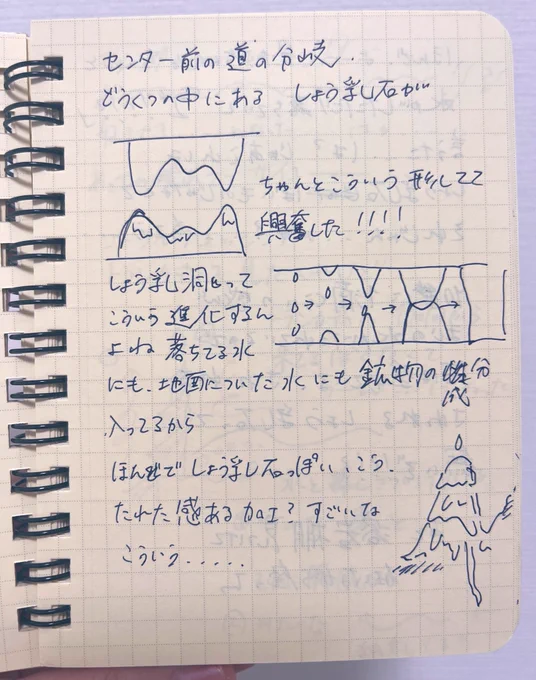 センター前の道の分岐.
どうくつの中にある しょう乳石が
ちゃんとこういう形してて
興奮した!!!!
しょう乳洞とって
こういう進化するん
よね 落ちてる水
にも、地面についた水にも鉱物の成分
入ってるから
ほんとで しょう乳石っぽい、こう、
たれた感ある加工?すごいな
こういう......